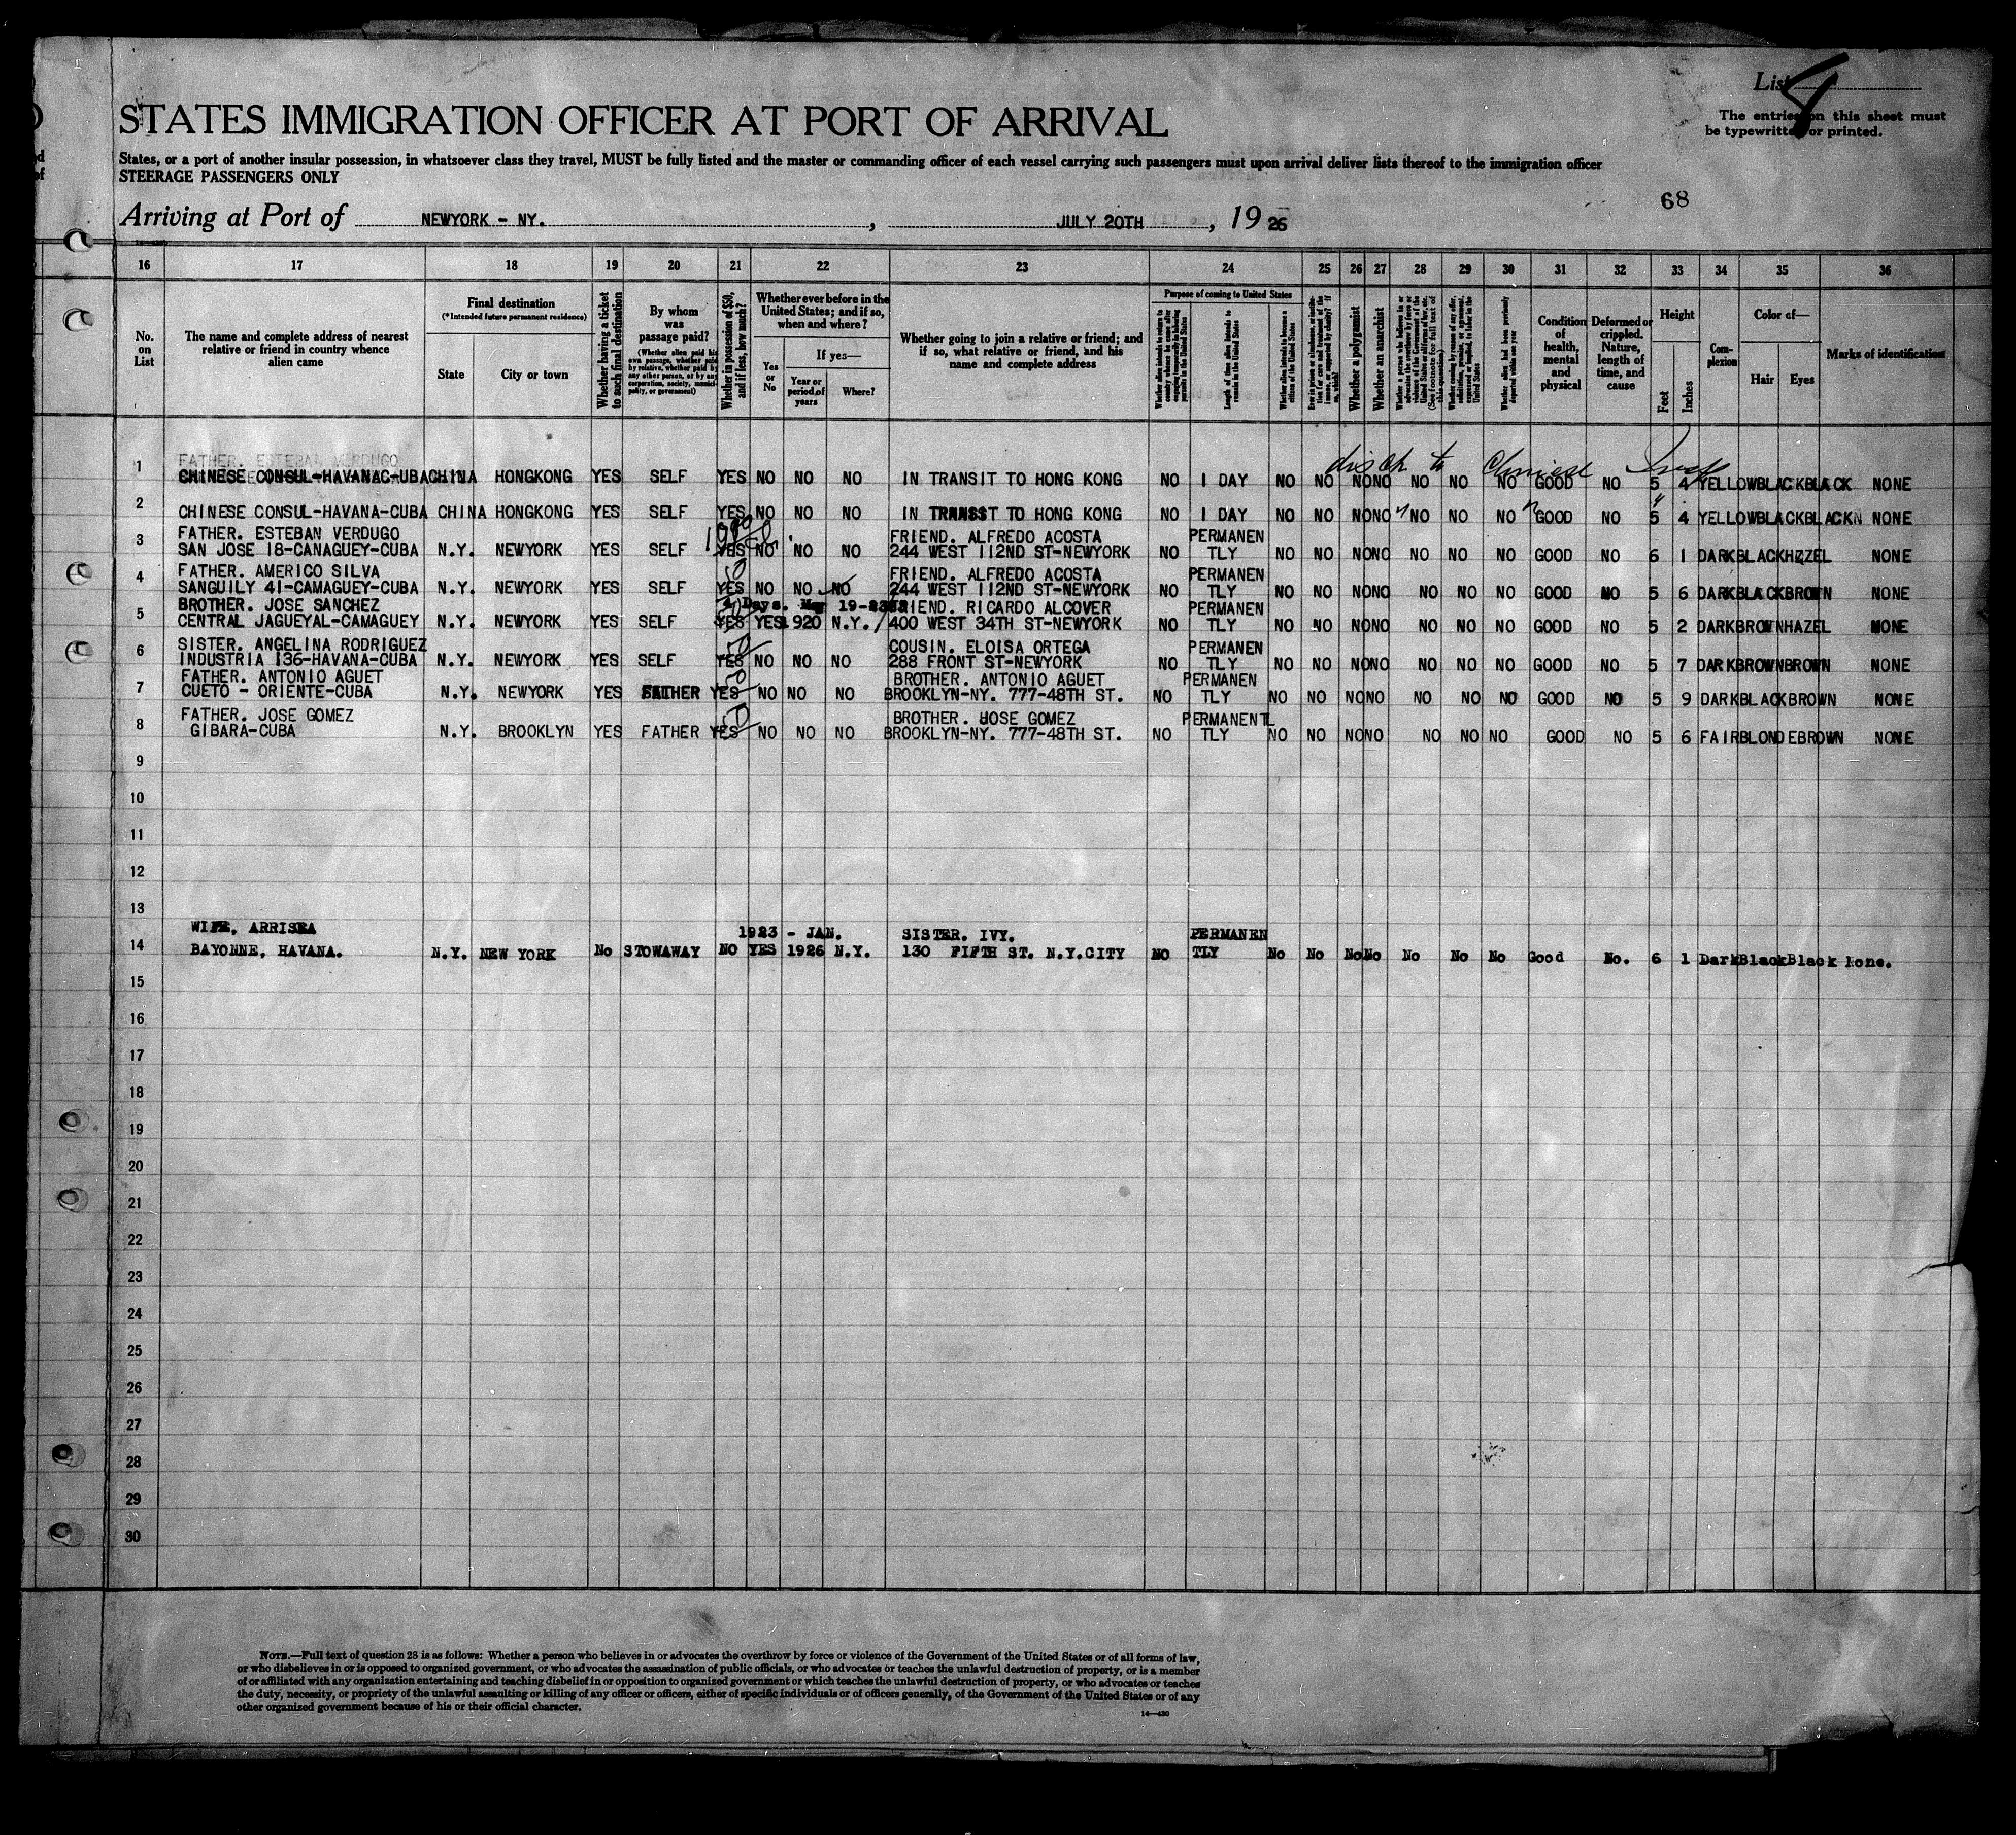 List 8
The entries on this sheet must
be typewritten or printed.
STATES IMMIGRATION OFFICER AT PORT OF ARRIVAL
States, or a port of another insular possession, in whatsoever class they travel, MUST be fully listed and the master or commanding officer of each vessel carrying such passengers must upon arrival deliver lists thereof to the immigration officer
STEERAGE PASSENGERS ONLY
68
Arriving at Port of NEWYORK - NY. , JULY 20TH , 19 26
16 17 18 19 20 21 22 23 24 25 26 27 28 29 30 31 32 33 34 35 36
No. on List
The name and complete address of nearest relative or friend in country whence alien came
Final destination
(*Intended future permanent residence)
State
City or town
Whether having a ticket to such final destination
By whom was passage paid?
(Whether alien paid his own passage, whether paid by relative, whether paid by any other person, or by any corporation, society, municipality, or government)
Whether in possession of $50, and if less, how much?
Whether ever before in the United States; and if so, when and where?
Yes or No
If yes—
Year or period of years
Where?
Whether going to join a relative or friend; and if so, what relative or friend, and his name and complete address
Purpose of coming to United States
Length of time alien intends to remain in the United States
Whether alien intends to become a citizen of the United States
Whether a polygamist
Whether an anarchist
Condition of health, mental and physical
Deformed or crippled. Nature, length of time, and cause
Height
Feet
Inches
Complexion
Color of—
Hair
Eyes
Marks of identification
FATHER. ESTEBAN VERDUGO
disch to Chinese
1 CHINESE CONSUL-HAVANAC-UBACHINA HONGKONG YES SELF YES NO NO NO IN TRANSIT TO HONG KONG NO 1 DAY NO NO NONO NO NO NO GOOD NO 5 4 YELLOWBLACKBLACK NONE
2 CHINESE CONSUL-HAVANA-CUBA CHINA HONGKONG YES SELF YES NO NO NO IN TRANSST TO HONG KONG NO 1 DAY NO NO NONO NO NO NO GOOD NO 5 4 YELLOWBLACKBLACKN NONE
FATHER. ESTEBAN VERDUGO FRIEND. ALFREDO ACOSTA PERMANEN
3 SAN JOSE 18-CANAGUEY-CUBA N.Y. NEWYORK YES SELF YES NO NO NO 244 WEST 112ND ST-NEWYORK NO TLY NO NO NONO NO NO NO GOOD NO 6 1 DARKBLACKHZZEL NONE
FATHER. AMERICO SILVA 50 FRIEND. ALFREDO ACOSTA PERMANEN
4 SANGUILY 41-CAMAGUEY-CUBA N.Y. NEWYORK YES SELF YES NO NO NO 244 WEST 112ND ST-NEWYORK NO TLY NO NO NONO NO NO NO GOOD NO 5 6 DARKBLACKBROWN NONE
BROTHER. JOSE SANCHEZ Days. 19-23 FRIEND. RICARDO ALCOVER PERMANEN
5 CENTRAL JAGUEYAL-CAMAGUEY N.Y. NEWYORK YES SELF YES YES 1920 N.Y. 400 WEST 34TH ST-NEWYORK NO TLY NO NO NONO NO NO NO GOOD NO 5 2 DARKBROWNHAZEL NONE
SISTER. ANGELINA RODRIGUEZ 50 COUSIN. ELOISA ORTEGA PERMANEN
6 INDUSTRIA 136-HAVANA-CUBA N.Y. NEWYORK YES SELF YES NO NO NO 288 FRONT ST-NEWYORK NO TLY NO NO NONO NO NO NO GOOD NO 5 7 DARKBROWNBROWN NONE
FATHER. ANTONIO AGUET 50 BROTHER. ANTONIO AGUET PERMANEN
7 CUETO - ORIENTE-CUBA N.Y. NEWYORK YES FATHER YES NO NO NO BROOKLYN-NY. 777-48TH ST. NO TLY NO NO NONO NO NO NO GOOD NO 5 9 DARKBLACKBROWN NONE
FATHER. JOSE GOMEZ 50 BROTHER. JOSE GOMEZ PERMANENTL
8 GIBARA-CUBA N.Y. BROOKLYN YES FATHER YES NO NO NO BROOKLYN-NY. 777-48TH ST. NO TLY NO NO NONO NO NO NO GOOD NO 5 6 FAIRBLONDEBROWN NONE
9
10
11
12
13
WIFE, ARRISEA 1923 - JAN. SISTER. IVY. PERMANEN
14 BAYONNE, HAVANA. N.Y. NEW YORK No STOWAWAY NO YES 1926 N.Y. 130 FIFTH ST. N.Y.CITY NO TLY No No NoNo No No No Good No. 6 1 DarkBlackBlack None.
15
16
17
18
19
20
21
22
23
24
25
26
27
28
29
30
NOTE.—Full text of question 28 is as follows: Whether a person who believes in or advocates the overthrow by force or violence of the Government of the United States or of all forms of law,
or who disbelieves in or is opposed to organized government, or who advocates the assassination of public officials, or who advocates or teaches the unlawful destruction of property, or is a member
of or affiliated with any organization entertaining and teaching disbelief in or opposition to organized government or which teaches the unlawful destruction of property, or who advocates or teaches
the duty, necessity, or propriety of the unlawful assaulting or killing of any officer or officers, either of specific individuals or of officers generally, of the Government of the United States or of any
other organized government because of his or their official character.
14—430